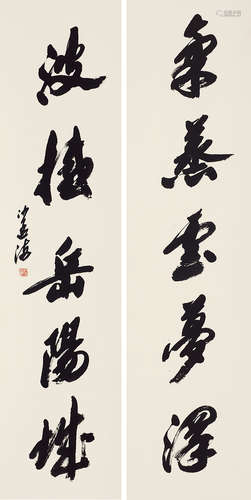 氣蒸雲夢澤
波撼岳陽城
沙孟海